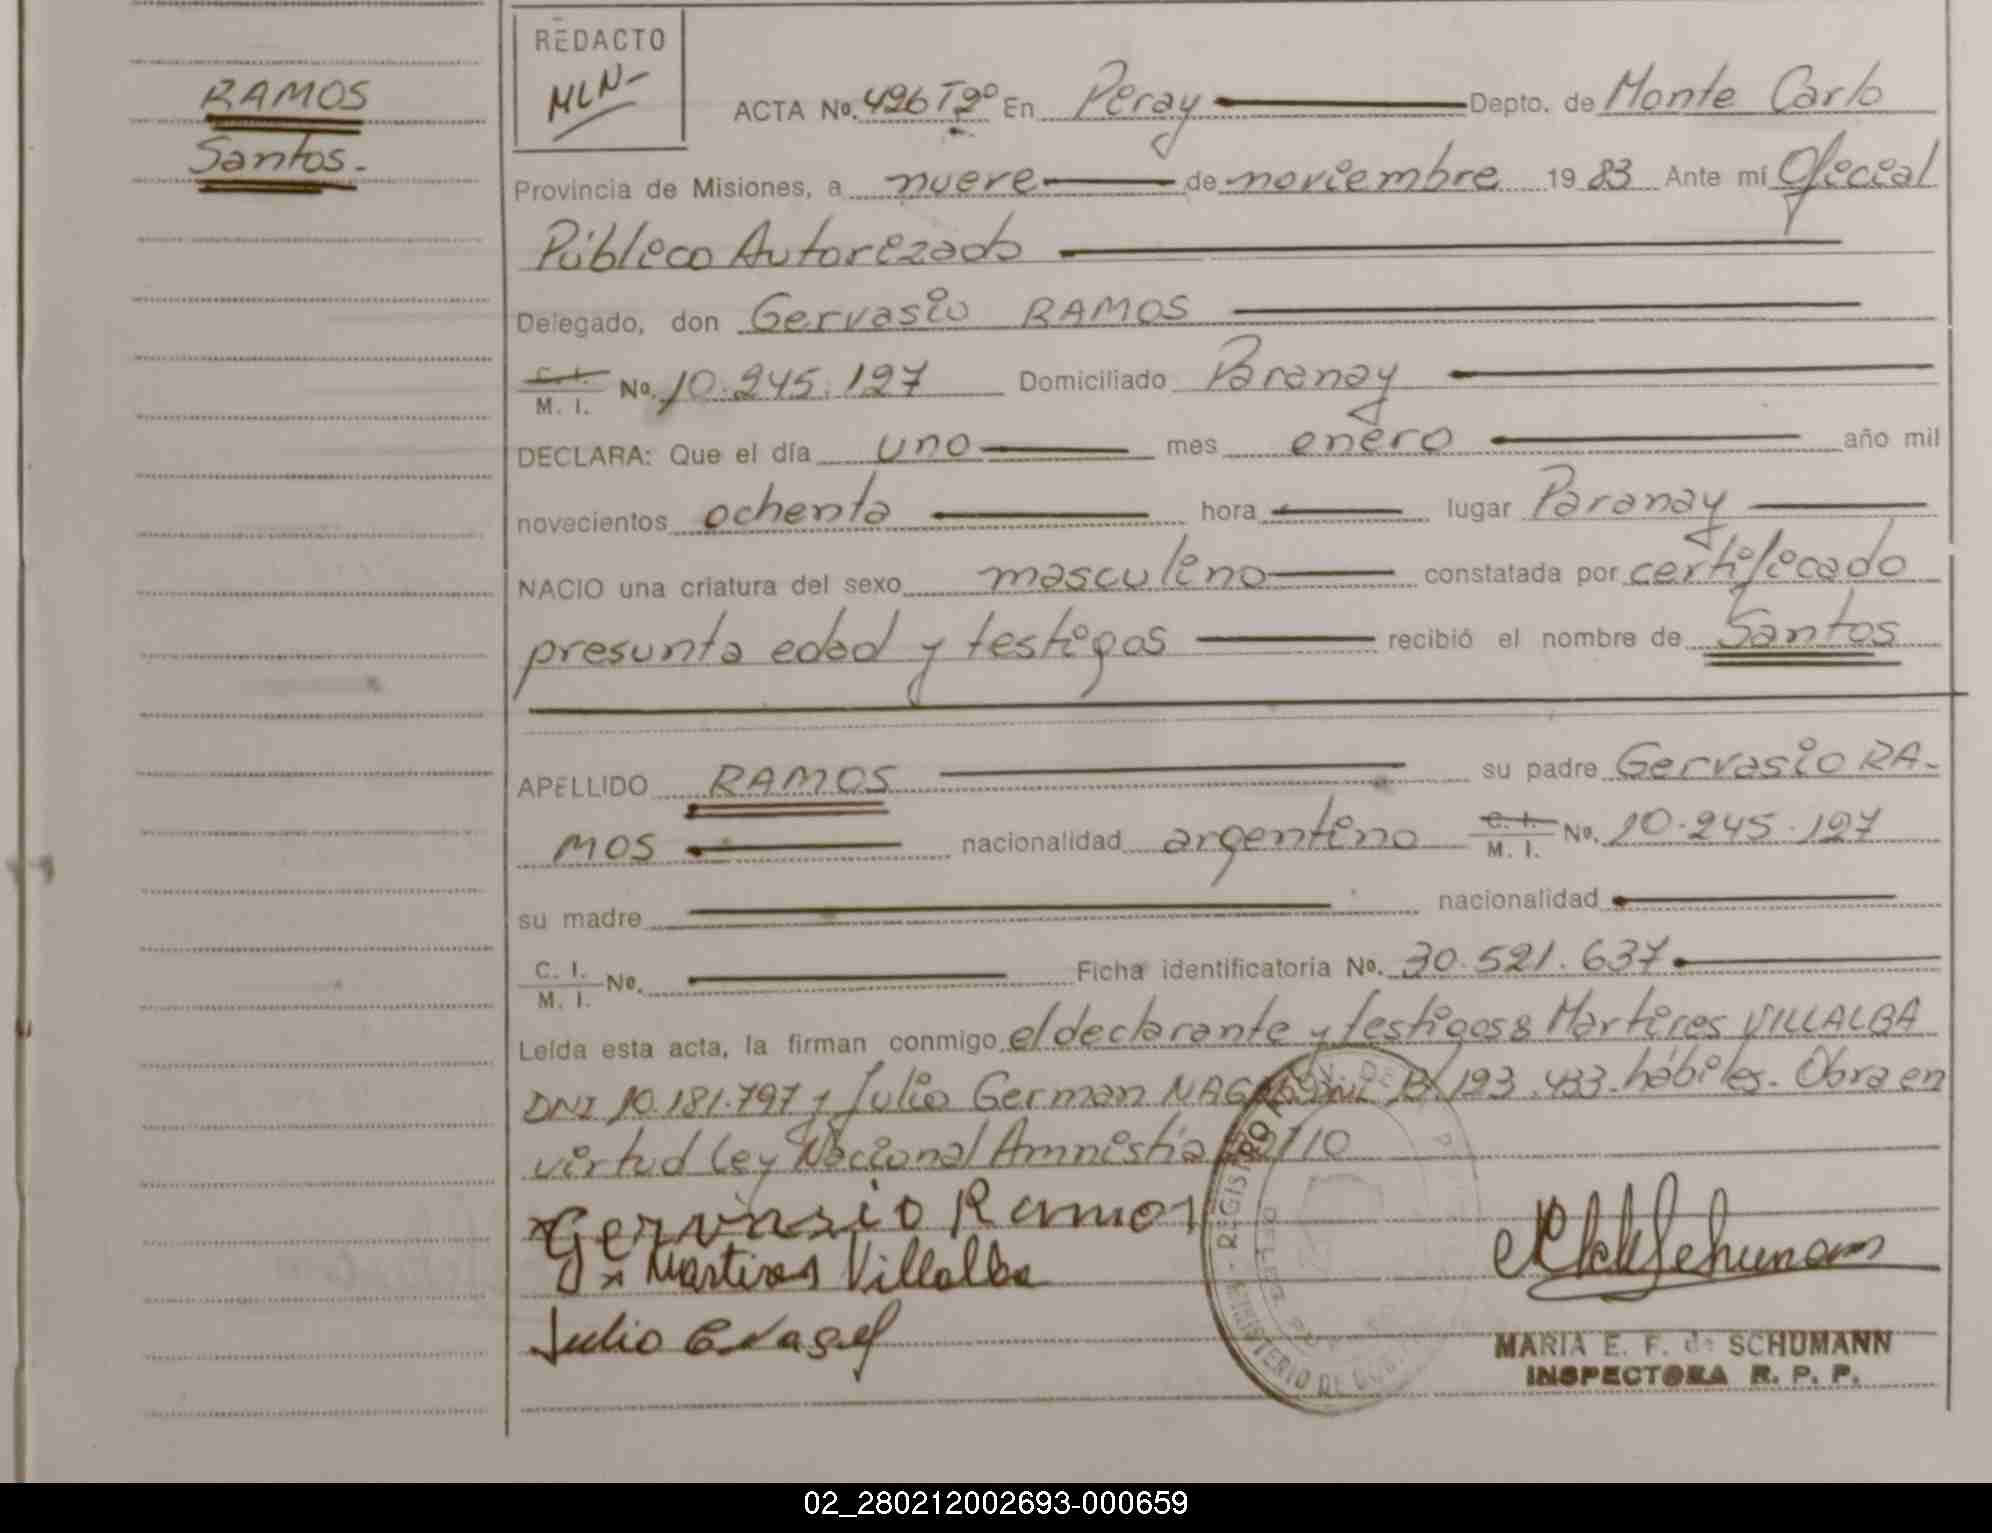 RAMOS
Santos.-
REDACTO
MLN-
ACTA No. 496 Tº2º En Peray Depto. de Monte Carlo
Provincia de Misiones, a nueve de noviembre 1983 Ante mí Oficial
Público Autorizado
Delegado, don Gervasio RAMOS
C. I. / M. I. No. 10.245.127 Domiciliado Paranay
DECLARA: Que el día uno mes enero año mil
novecientos ochenta hora lugar Paranay
NACIO una criatura del sexo masculino constatada por certificado
presunta edad y testigos recibió el nombre de Santos
APELLIDO RAMOS su padre Gervasio RA-
MOS nacionalidad argentino C. I. / M. I. No. 10.245.127
su madre nacionalidad
C. I. / M. I. No. Ficha identificatoria No. 30.521.637
Leída esta acta, la firman conmigo el declarante y testigos: Martires VILLALBA
DNI 10.181.797 y Julio German 193.433. hábiles. Obra en
virtud Ley Nacional Amnistía
Gervasio Ramos
x Martires Villalba
Julio
MARIA E. F. de SCHUMANN
INSPECTORA R. P. P.
02_280212002693-000659